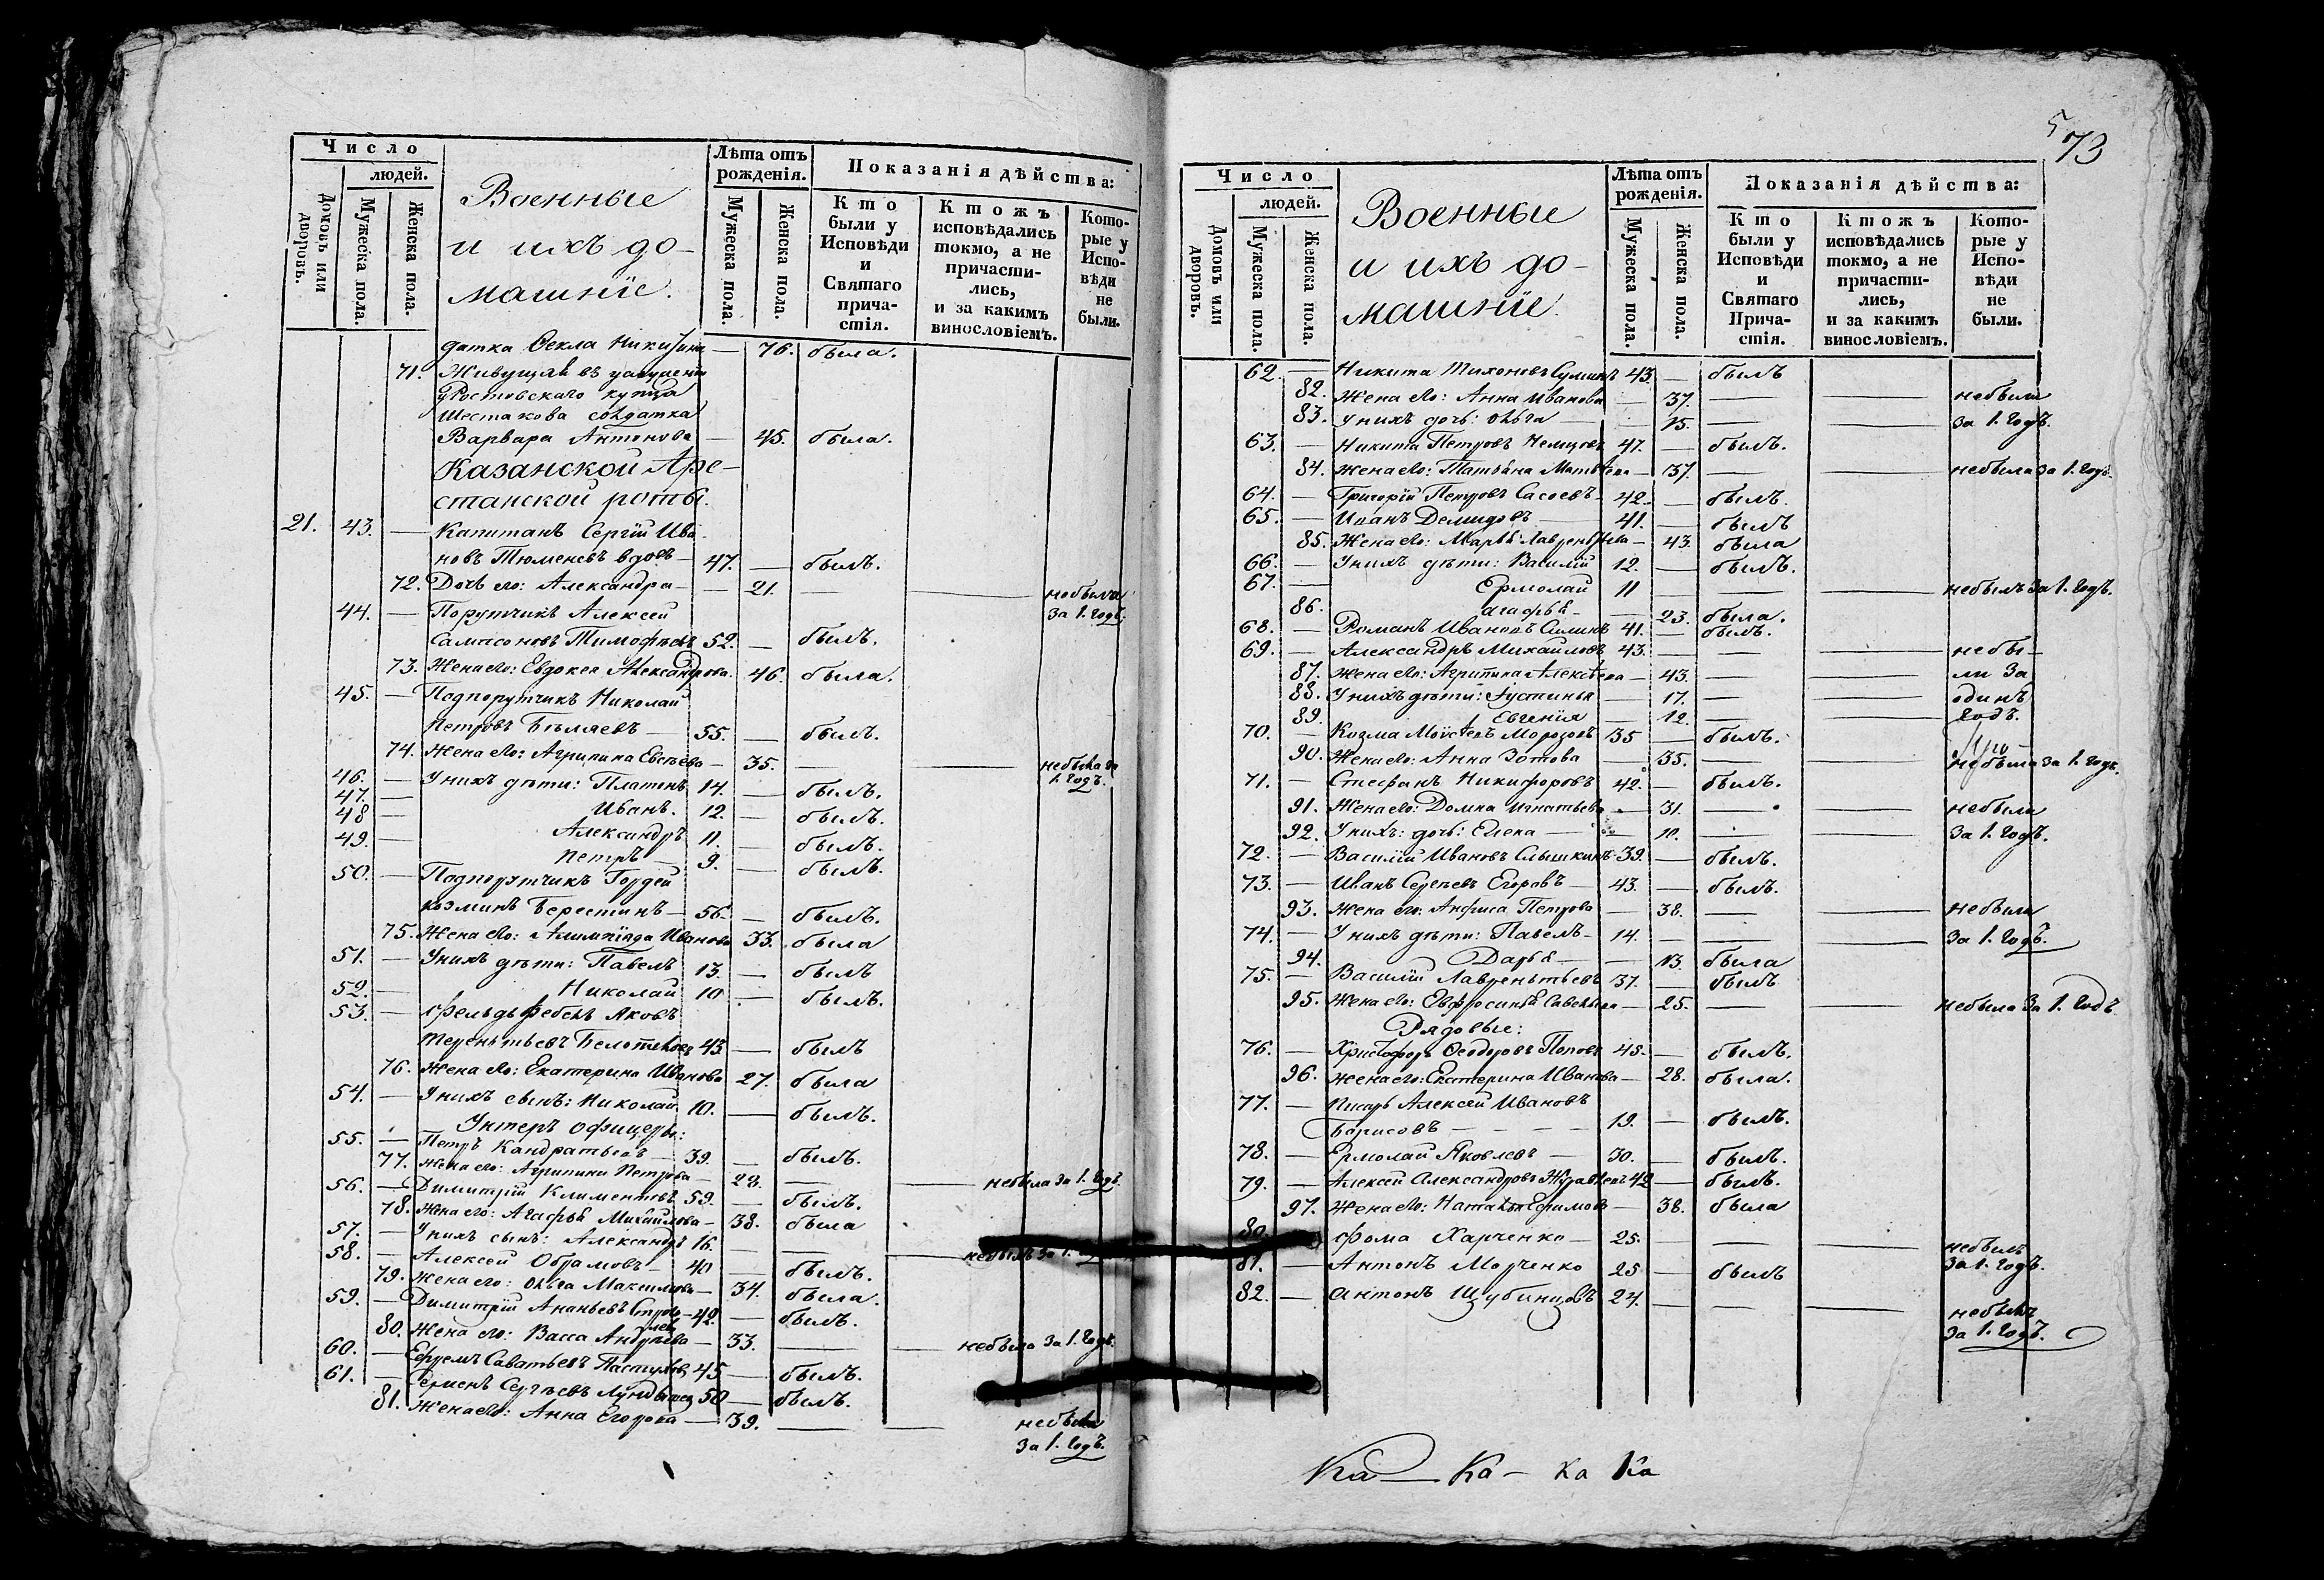 Число
людей.
Домовъ или дворовъ.
Мужеска пола.
Женска пола.
Военные
и ихъ до-
машніе.
Лѣта отъ
рожденія.
Мужеска пола.
Женска пола.
Показанія дѣйства:
Кто
были у
Исповѣди
и
Святаго
прича-
стія.
Ктожъ
исповѣдались
токмо, а не
причасти-
лись,
и за какимъ
винословіемъ.
Кото-
рые у
Испо-
вѣди
не
были.
датка Ѳекла Никитина — 76. была.
71. Живущая въ услуженіи
у Ростовскаго купца
Шестакова солдатка
Варвара Антонова — 45. была.
Казанской Аре-
стантской роты.
21. 43. — Капитанъ Сергій Ива-
новъ Тюменевъ вдовъ — 47. — былъ.
72. Дочь его: Александра — — 21. — — небыла
44. — Порутчикъ Алексей за 1. годъ.
Самсоновъ Тимофѣевъ 52. — былъ.
73. Жена его: Евдокея Александрова. 46. была.
45. — Подпорутчикъ Николай
Петровъ Бѣляевъ — 55. — былъ.
74. Жена его: Агрипина Евсѣева — 35. — — небыла за
1. годъ.
46. — У нихъ дѣти: Платонъ 14. — былъ.
47. — Иванъ. 12. — былъ.
48 — Александръ 11. — былъ.
49. — Петръ — 9. — былъ.
50. — Подпорутчикъ Гордей
Козминъ Берестинъ — 56. — былъ.
75. Жена его: Алимпіада Иванова 33. была
51. — У нихъ дѣти: Павелъ 13. — былъ
52. — Николай 10 — былъ.
53. — Фельдфебель Яковъ
Терентьевъ 43. — былъ
76. Жена его: Екатерина Иванова 27. была
54. — У нихъ сынъ: Николай 10. — былъ.
Унтеръ офицеры:
55. — Петръ Кандратьевъ — 39. — былъ.
77. Жена его: Агрипина Петрова — 28. — — небыла за 1. годъ.
56. — Димитрій Климентовъ 59. — былъ.
78. Жена его: Агафья Михайлова — 38. была
57. — У нихъ сынъ: Александръ 16. — — небылъ за 1.
58. — Алексей Обрамовъ — 40 — былъ.
79. Жена его: Ольга Максимова — 34. была.
59. — Димитрій Ананьевъ 42. — былъ.
80. Жена его: Васса Андреева — 33. — — небыла за 1. годъ.
60. — Ефремъ Саватьевъ Пастуховъ 45 — былъ.
61. — Сергѣевъ 50 — былъ.
81. Жена его: Анна Егорова — 39. — — небыла
за 1. годъ.
5
73
Число
людей.
Домовъ или дворовъ.
Мужеска пола.
Женска пола.
Военные
и ихъ до-
машніе.
Лѣта отъ
рожденія.
Мужеска пола.
Женска пола.
Показанія дѣйства:
Кто
были у
Исповѣди
и
Святаго
Прича-
стія.
Ктожъ
исповѣдались
токмо, а не
причасти-
лись,
и за какимъ
винословіемъ.
Кото-
рые у
Испо-
вѣди
не
были.
62. — Никита Тихоновъ 43. — былъ
82. Жена его: Анна Иванова — 37. — — небыли
83. У нихъ дочь: Ольга — 15. — — за 1. годъ.
63. — Никита Петровъ Немцовъ 47. — былъ.
84. Жена его: Татьяна Матвѣева — 37. — — небыла за 1. годъ.
64. — Григорій Петровъ Сасоевъ 42. — былъ.
65. — Иванъ Демидовъ — 41. — былъ
85. Жена его: Марья Лаврентьева — 43. была
66. — У нихъ дѣти: Василій 12. — былъ.
67. — Ермолай 11 — — — небылъ за 1. годъ.
86. Агафья — — 23. была.
68. — Романъ Ивановъ Силинъ 41. — былъ.
69. — Александръ Михайловъ 43. — — — небы-
87. Жена его: Агрипина Алексѣева — 43. — — ли за
88. У нихъ дѣти: Іустинья — 17. — — одинъ
89. Евгенія — 12. — — годъ.
70. — Козма Моисѣевъ Морозовъ 35 — былъ.
90. Жена его: Анна Зотова — 35. — небыла за 1. годъ.
71. — Стефанъ Никифоровъ 42. — былъ.
91. Жена его: Домна Игнатьева — 31. — — небыли
92. У нихъ: дочь: Елена — — 10. — — за 1. годъ.
72. — Василій Ивановъ Слышкинъ 39. — былъ.
73. — Иванъ Сергѣевъ Егоровъ — 43. — былъ.
93. Жена его: Анфиса Петрова — 38. — — небыли
74. — У нихъ дѣти: Павелъ — 14. — — — за 1. годъ.
94. Дарья — — 13. была
75. — Василій Лаврентьевъ 37. — былъ
95. Жена его: Евфросинья Савельева — 25. — — небыла за 1. годъ
Рядовые:
76. — Христофоръ Ѳеодоровъ Поповъ 45. — былъ.
96. Жена его: Екатерина Иванова — 28. была.
77. — Писарь Алексей Ивановъ
Борисовъ — — — — 19. — былъ.
78. — Ермолай Яковлевъ — 30. — былъ.
79. — Алексей Александровъ Журавлевъ 42 — былъ.
97. Жена его: Наталья Ефимова — 38. была
80. — Фома Харченко — 25. — — — небылъ
за 1. годъ.
81. — АнтонъМорченко 25 — былъ
82. — Антонъ Шубинцовъ 24. — — — небылъ
за 1. годъ.
Ка — Ка — Ка Ка